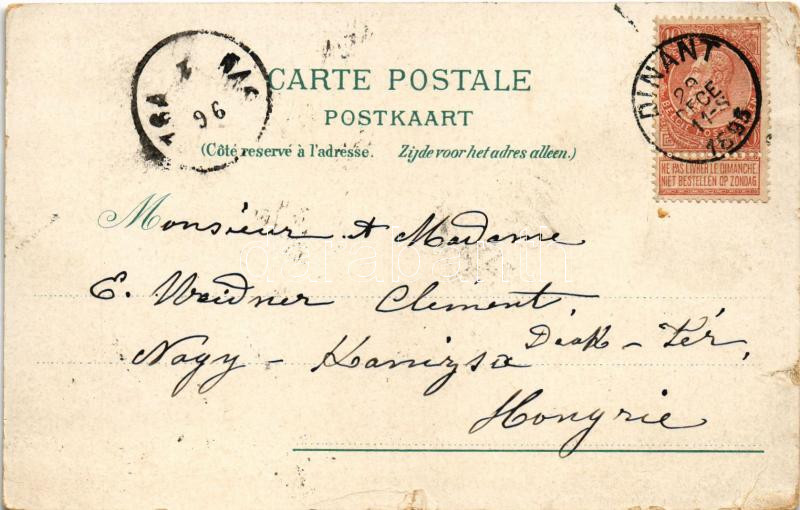 CARTE POSTALE
POSTKAART
(Côté reservé à l'adresse. Zijde voor het adres alleen.)
DINANT
1895
NE PAS LIVRER LE DIMANCHE
NIET BESTELLEN OP ZONDAG
NAG
96
Monsieur & Madame
E. Weidner Clement
Deák-Tér,
Nagy-Kanizsa
Hongrie
darabanth